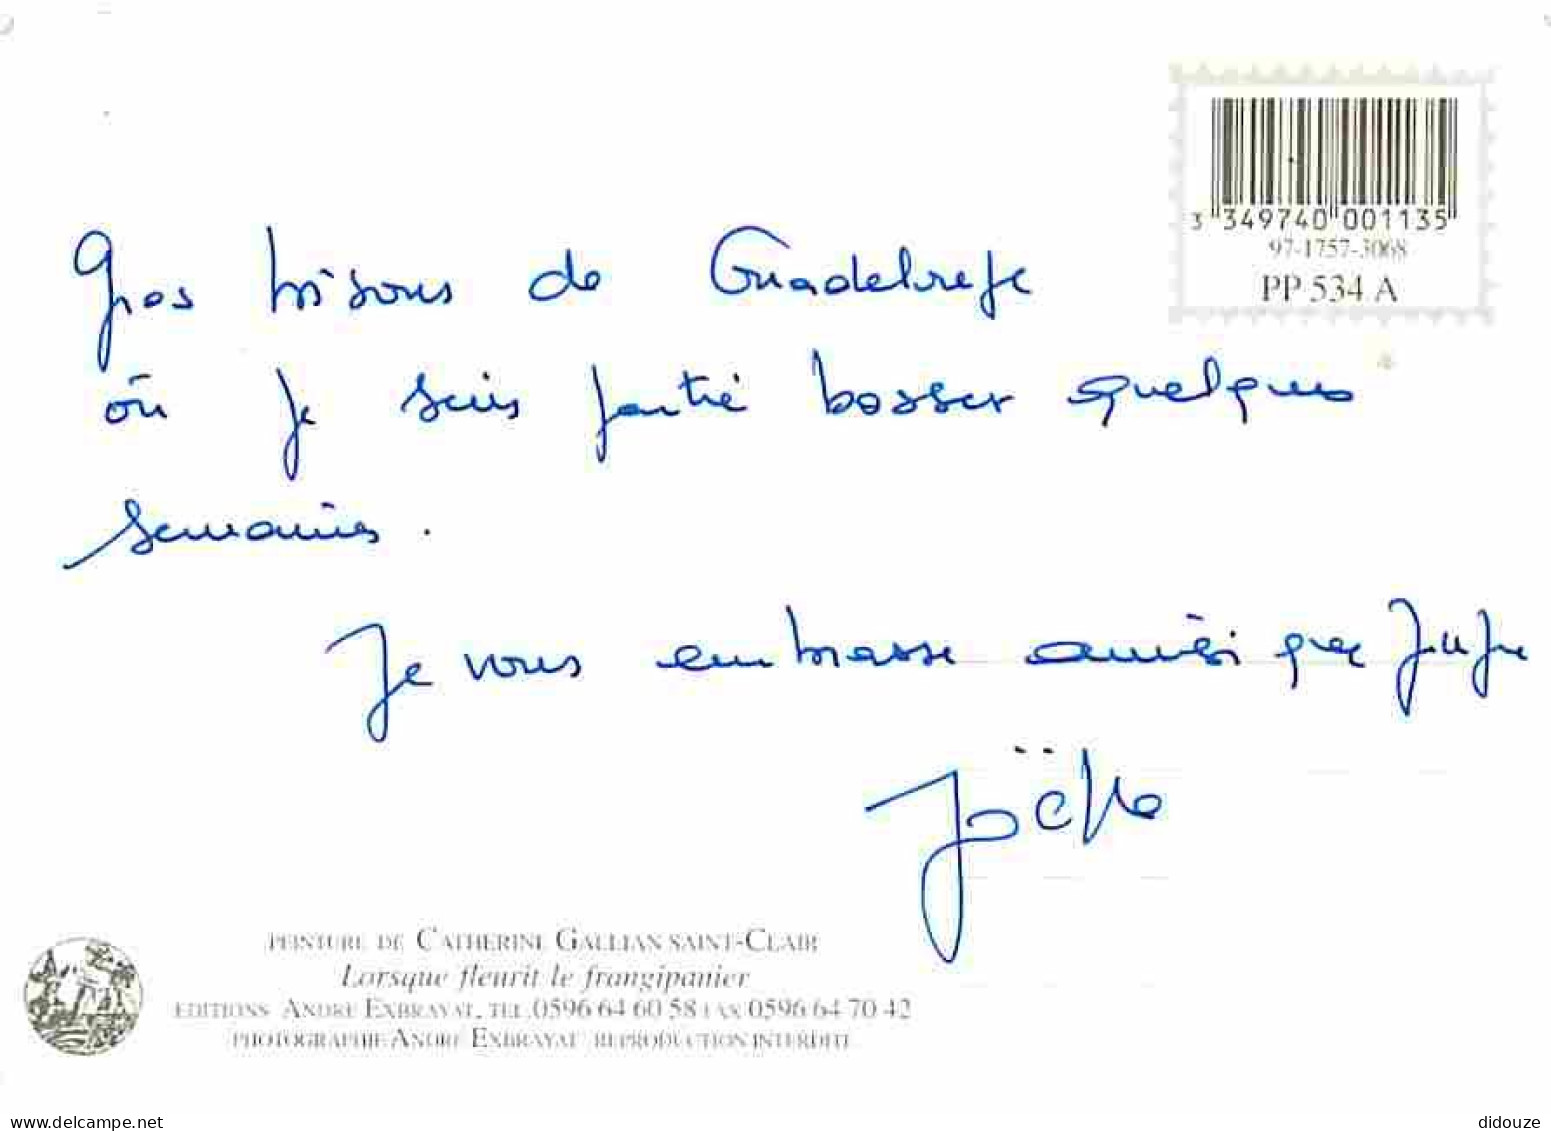 3 349740 001135
97-1757-3068
PP 534 A
Gros bisous de Guadeloupe
où je suis partie bosser quelques
semaines.
Je vous embrasse ainsi que Juju
Joëlle
PEINTURE DE CATHERINE GALLIAN SAINT-CLAIR
Lorsque fleurit le frangipanier
EDITIONS ANDRÉ EXBRAYAT, TEL.0596 64 60 58 FAX 0596 64 70 42
PHOTOGRAPHIE ANDRÉ EXBRAYAT REPRODUCTION INTERDITE
www.delcampe.net
didouze